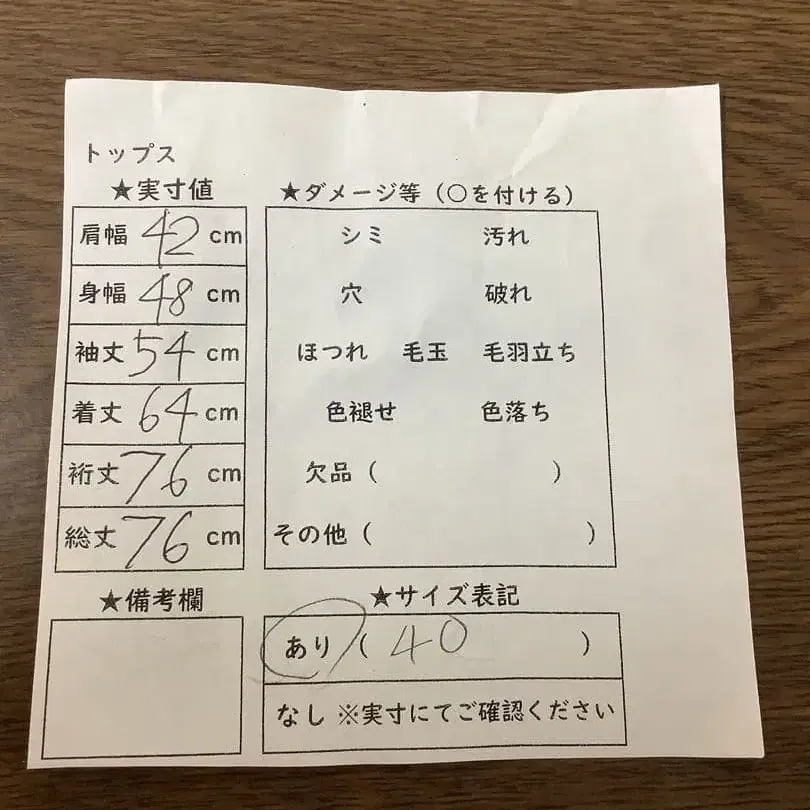 トップス
★実寸値
肩幅 42 cm
身幅 48 cm
袖丈 54 cm
着丈 64 cm
裄丈 76 cm
総丈 76 cm
★ダメージ等（○を付ける）
シミ 汚れ
穴 破れ
ほつれ 毛玉 毛羽立ち
色褪せ 色落ち
欠品（ ）
その他（ ）
★備考欄
★サイズ表記
あり（ 40 ）
なし ※実寸にてご確認ください